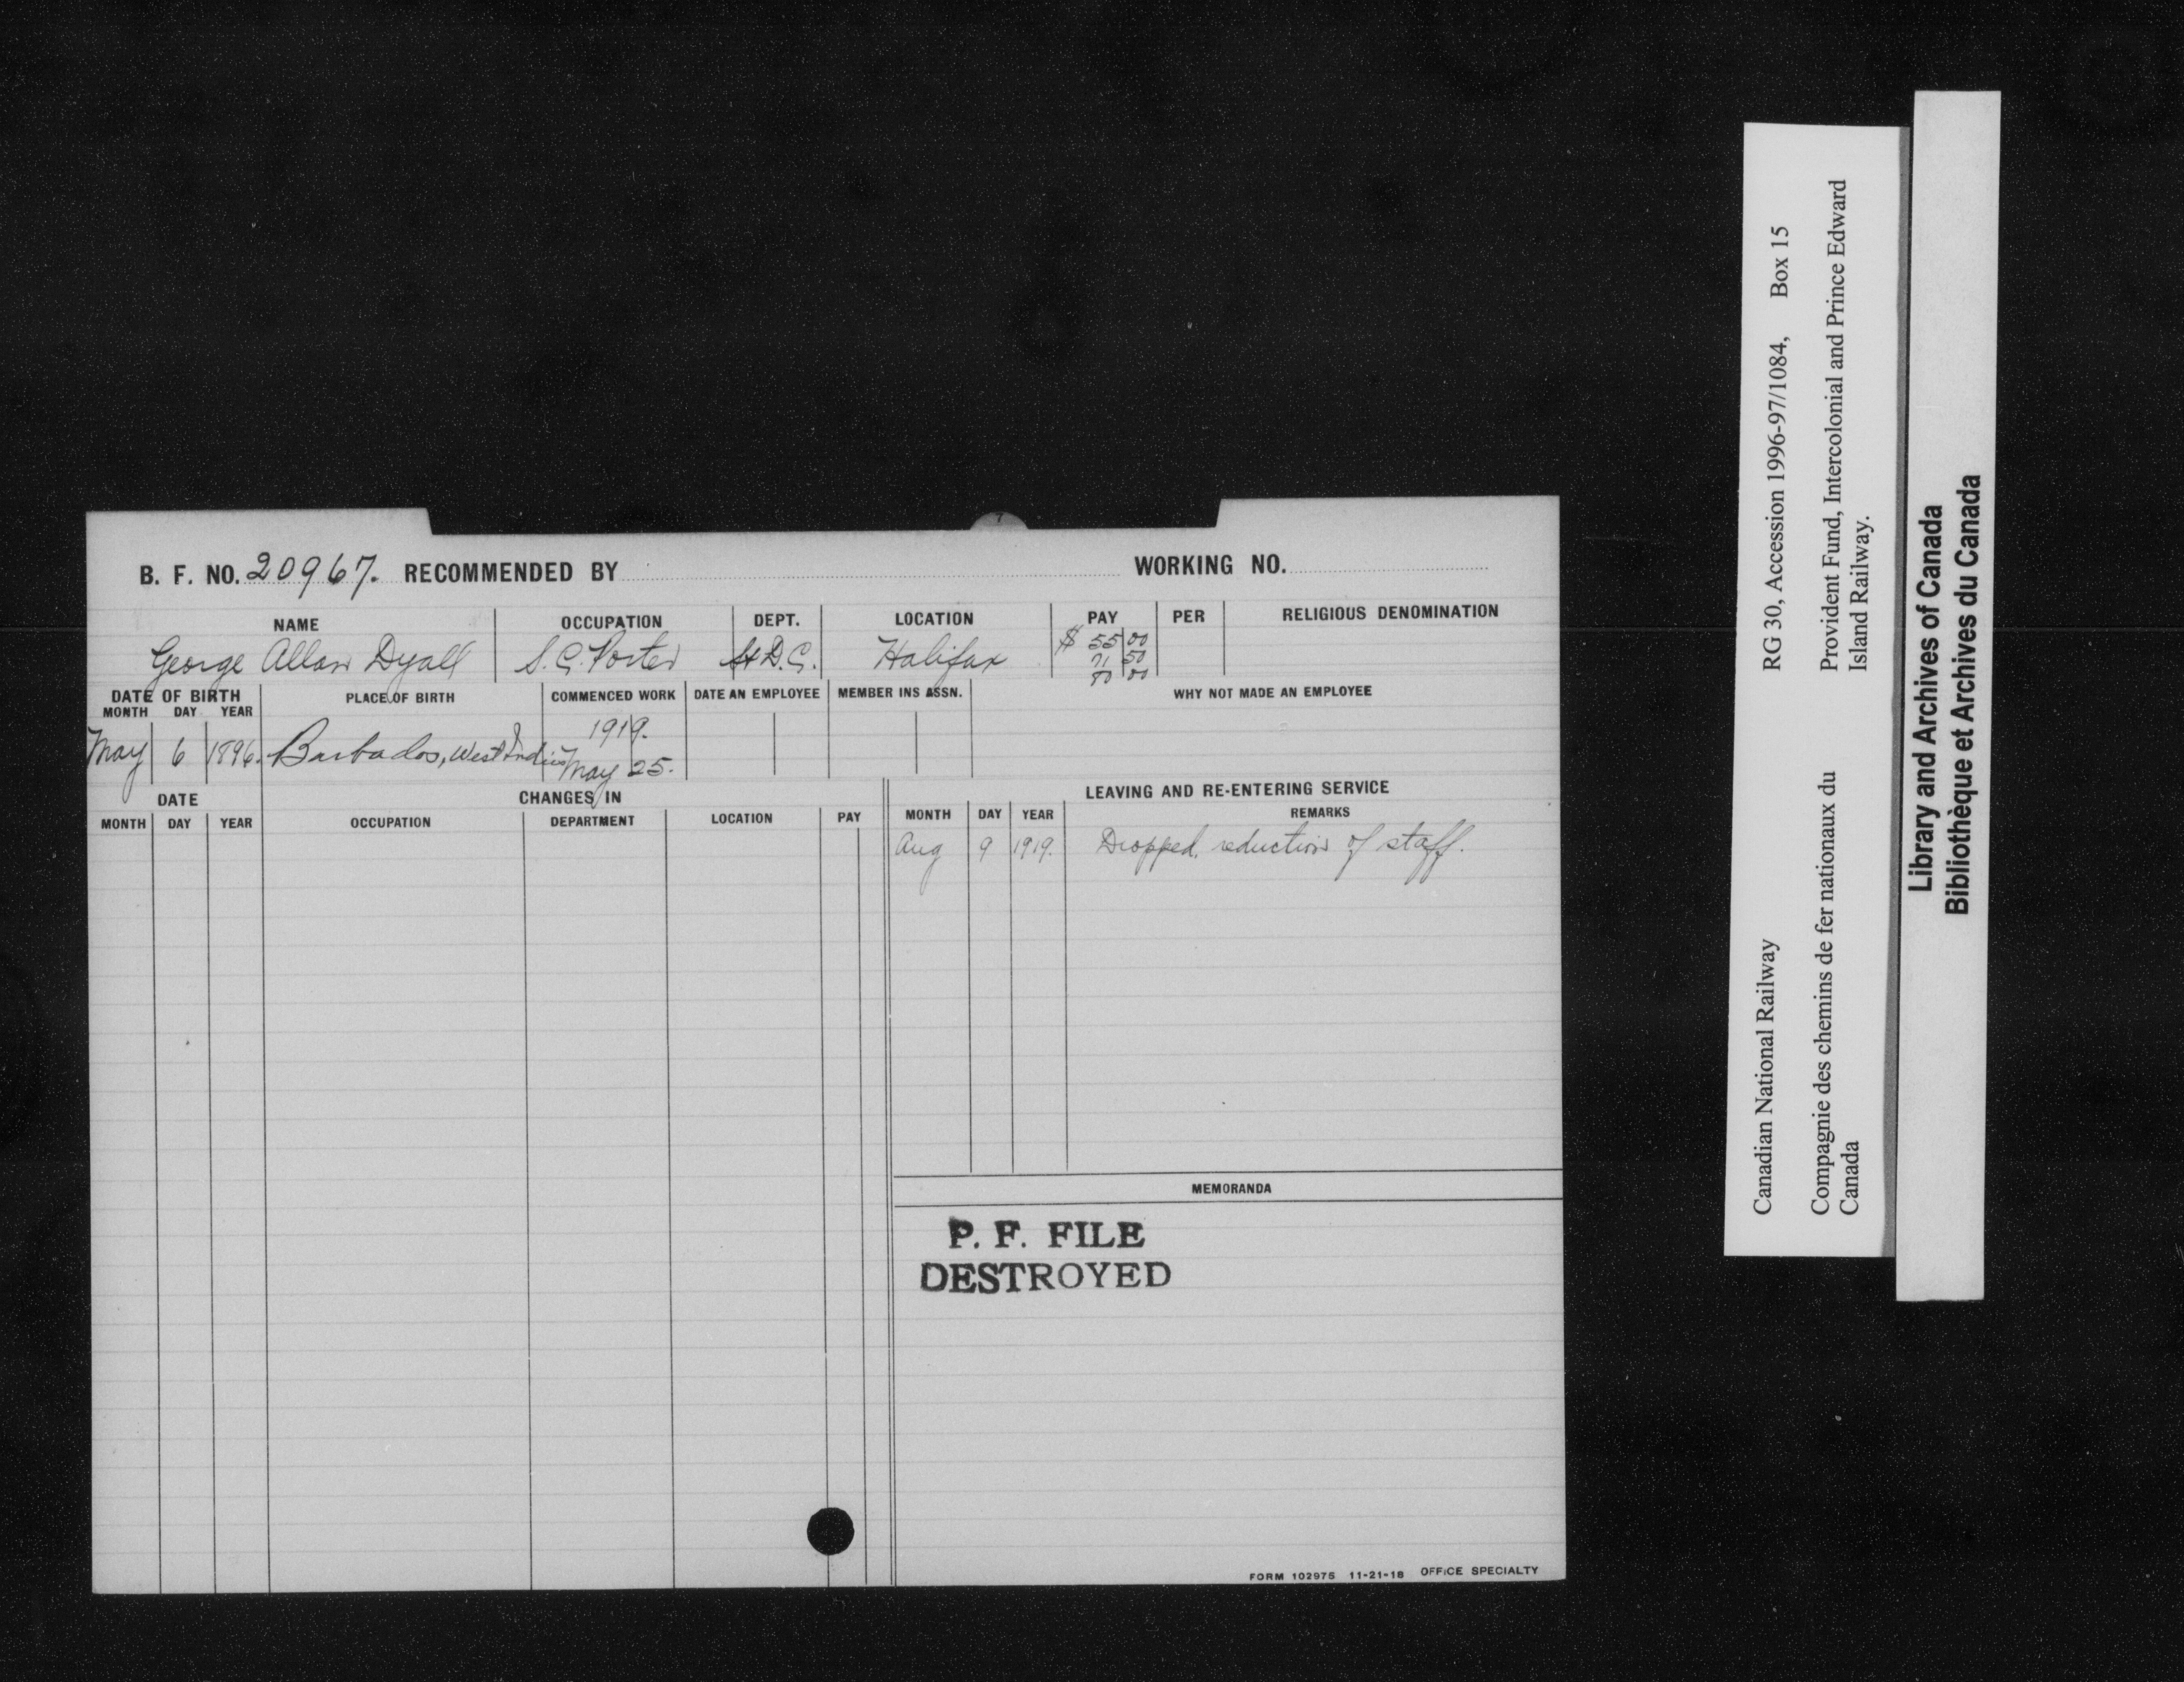 B. F. NO. 20967. RECOMMENDED BY WORKING NO.
NAME OCCUPATION DEPT. LOCATION PAY PER RELIGIOUS DENOMINATION
George Allan Dyall S.C. Porter Halifax $ 55 00
71 50
00
DATE OF BIRTH PLACE OF BIRTH COMMENCED WORK DATE AN EMPLOYEE MEMBER INS ASSN. WHY NOT MADE AN EMPLOYEE
MONTH DAY YEAR
1919.
May 6 1896. Barbados, West Indies May 25.
DATE CHANGES IN LEAVING AND RE-ENTERING SERVICE
MONTH DAY YEAR OCCUPATION DEPARTMENT LOCATION PAY MONTH DAY YEAR REMARKS
Aug 9 1919. Dropped, reduction of staff.
MEMORANDA
P. F. FILE
DESTROYED
FORM 102975 11-21-18 OFFICE SPECIALTY
Canadian National Railway RG 30, Accession 1996-97/1084, Box 15
Compagnie des chemins de fer nationaux du Provident Fund, Intercolonial and Prince Edward
Canada Island Railway.
Library and Archives of Canada
Bibliothèque et Archives du Canada